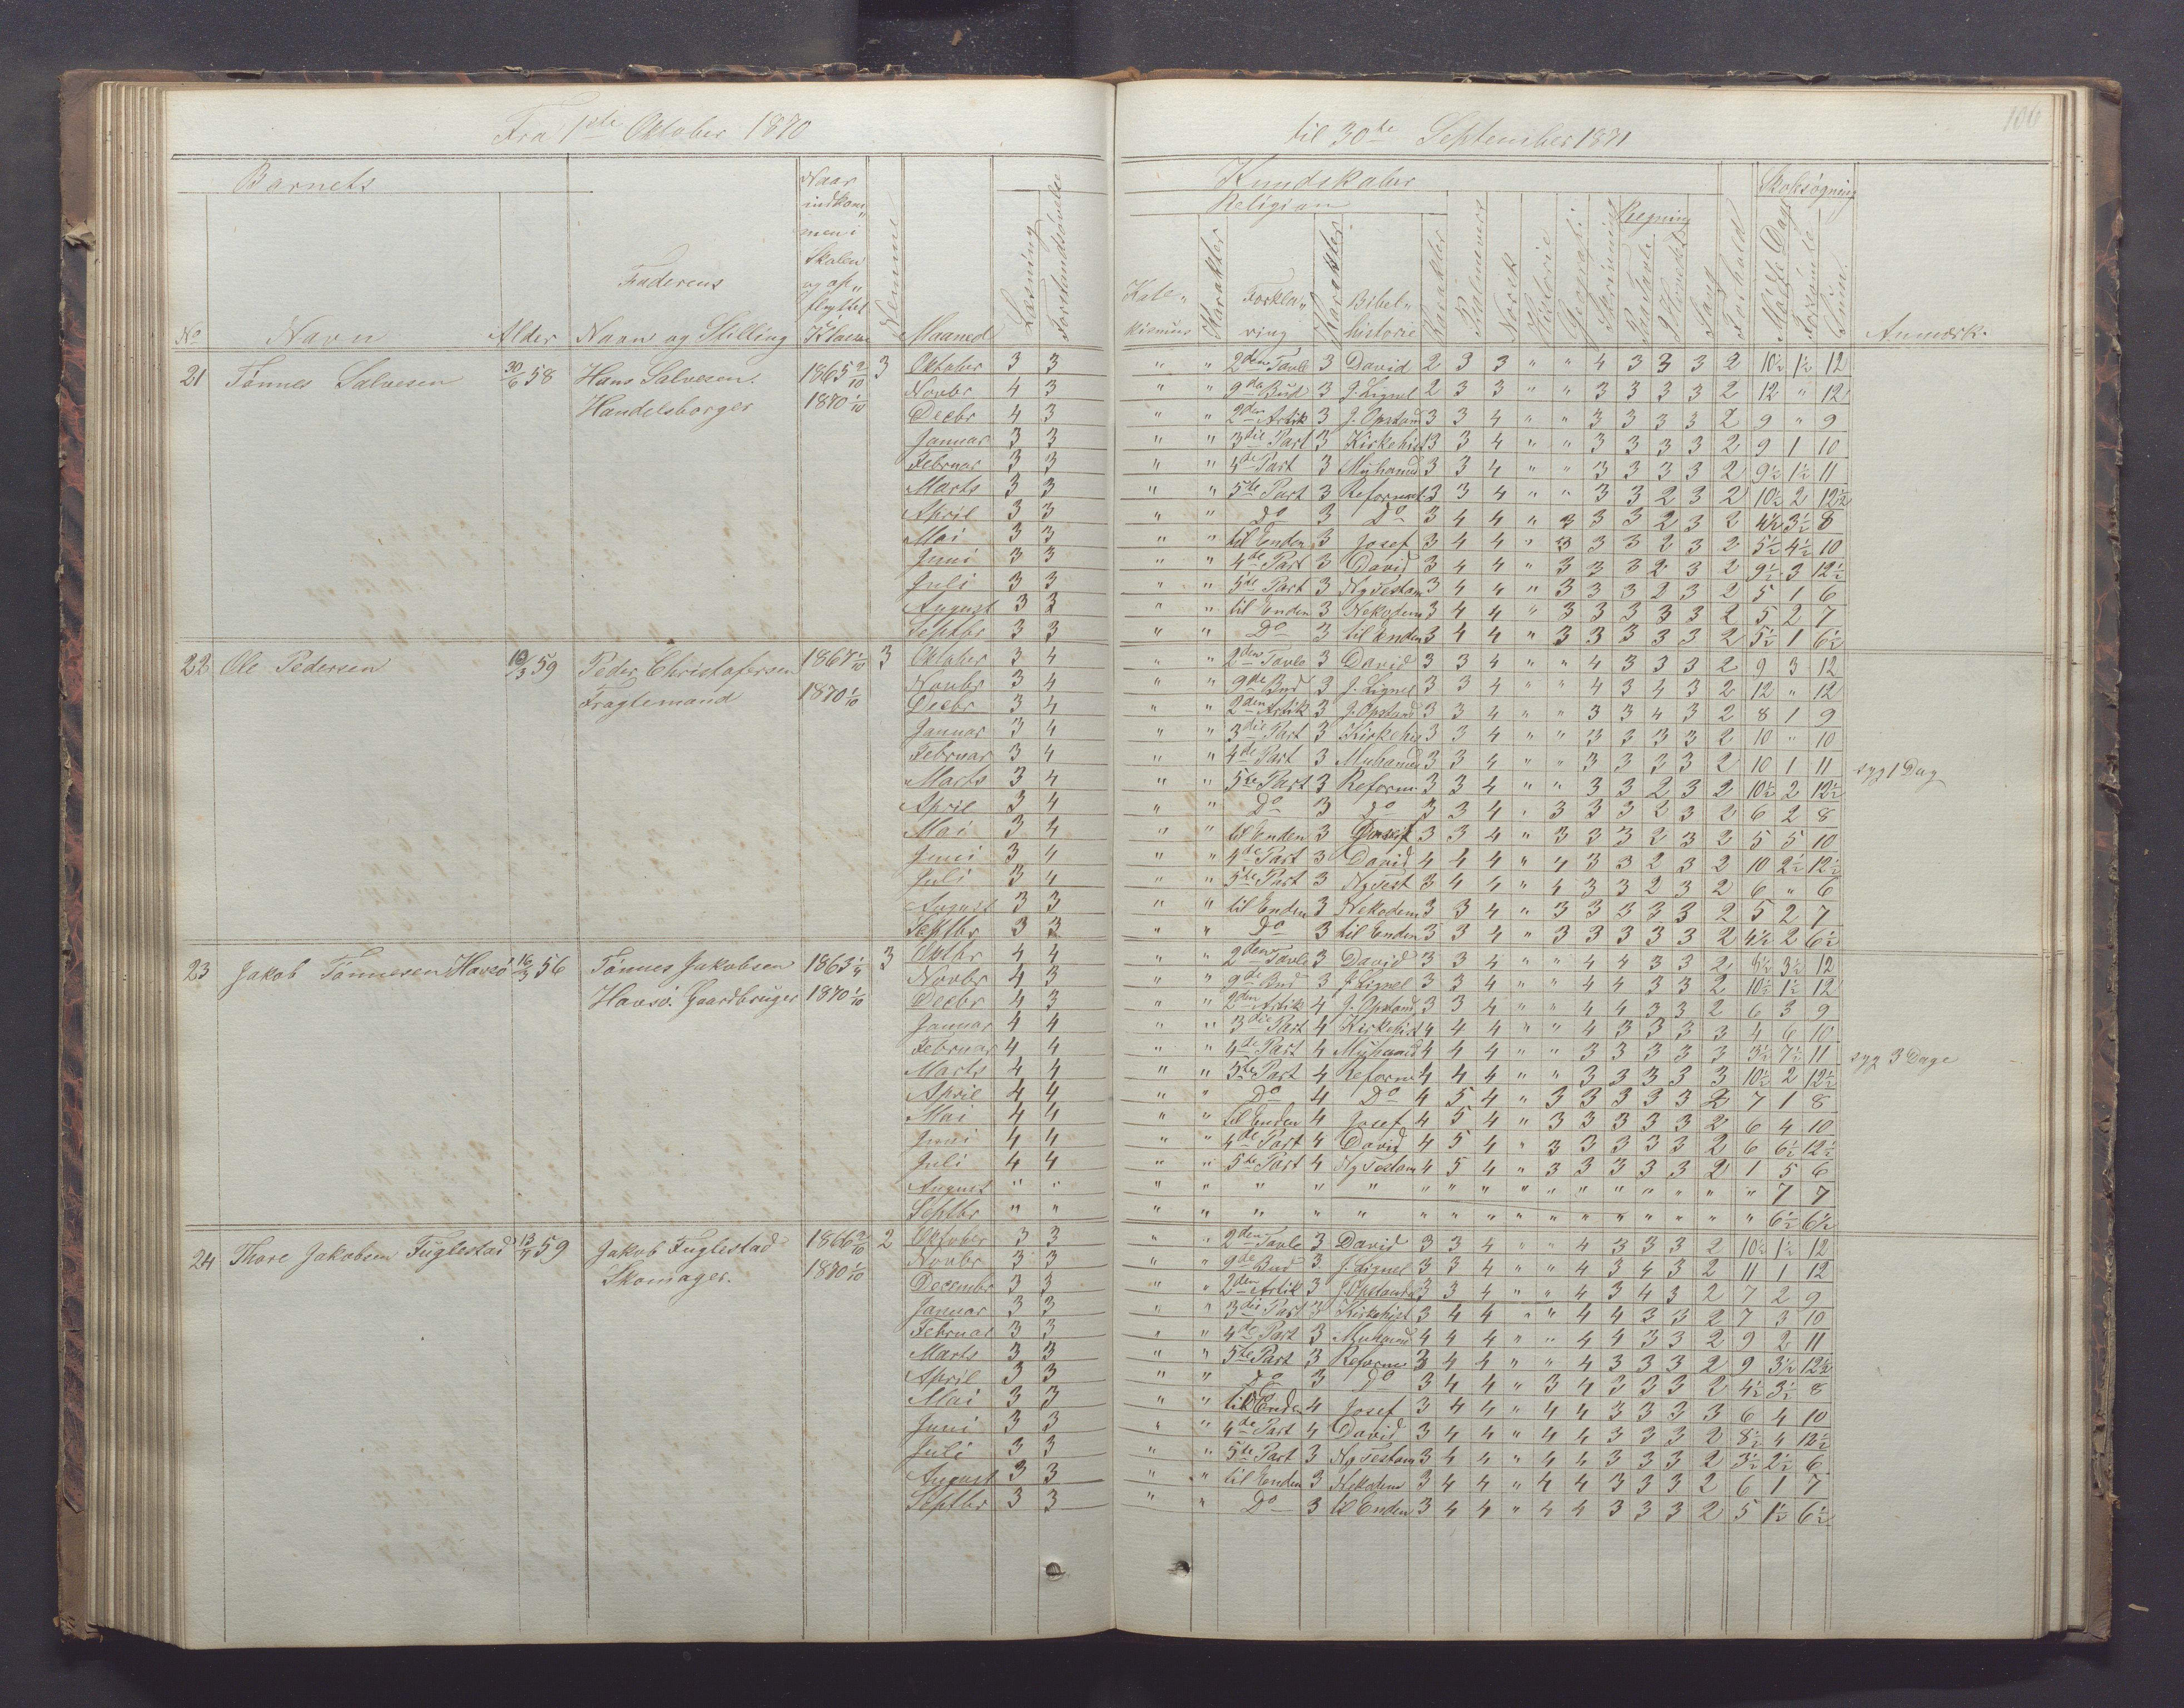 Fra 1ste Oktober 1870 til 30te September 1871
106
Barnets Naar indkommen i Skolen og opflyttet i Klasse Nemme Læsning Forstandsøvelse Kundskaber Skolesøgning
Religion Regning
No Navn Alder Faderens Navn og Stilling Maaned Katekismus Karakter Forklaring Karakter Bibelhistorie Karakter Salmevers Norsk Historie Geografi Skrivning Paa Tavle I Hovedet Sang Forhold Mødte Dage Forsømte Sum Anmærk.
21 Tønnes Salvesen 30/6 58 Hans Salvesen. 1865 2/10 3 Oktober 3 3 " " 2den Tavle 3 David 2 3 3 " " 4 3 3 3 2 10½ 1½ 12
Handelsborger 1870 1/10 Novbr 4 3 " " 9de Bud 3 J. Lignel 2 3 3 " " 3 3 3 3 2 12 " 12
Decbr 4 3 " " 2den Artik 3 J. Opstand 3 3 4 " " 3 3 3 3 2 9 " 9
Januar 3 3 " " 3die Part 3 Kirkehist 3 3 4 " " 3 3 3 3 2 9 1 10
Februar 3 3 " " 4de Part 3 Muhamed 3 3 4 " " 3 3 3 3 2 9½ 1½ 11
Marts 3 3 " " 5te Part 3 Reformat. 3 3 4 " " 3 3 2 3 2 10½ 2 12½
April 3 3 " " Do 3 Do 3 4 4 " 3 3 3 2 3 2 4½ 3½ 8
Mai 3 3 " " til Enden 3 Josef 3 4 4 " 3 3 3 2 3 2 5½ 4½ 10
Juni 3 3 " " 4de Part 3 David 3 4 4 " 3 3 3 2 3 2 9½ 3 12½
Juli 3 3 " " 5te Part 3 Ny Testam 3 4 4 " 3 3 3 2 3 2 5 1 6
August 3 3 " " til Enden 3 Nekodem 3 4 4 " 3 3 3 3 3 2 5 2 7
Septbr 3 3 " " Do 3 til Enden 3 4 4 " 3 3 3 3 3 2 5½ 1 6½
22 Ole Pedersen 10/3 59 Peder Christofersen 1867 1/10 3 Oktober 3 4 " " 2den Tavle 3 David 3 3 4 " " 4 3 3 3 2 9 3 12
Fragtemand 1870 1/10 Novbr 3 4 " " 9de Bud 3 J. Lignel 3 3 4 " " 4 3 4 3 2 12 " 12
Decbr 3 4 " " 2den Artik 3 J. Opstand 3 3 4 " " 3 3 4 3 2 8 1 9
Januar 3 4 " " 3die Part 3 Kirkehis 3 3 4 " " 3 3 3 3 2 10 " 10
Februar 3 4 " " 4de Part 3 Muhamed 3 3 4 " " 3 3 3 3 2 10 1 11 syg 1 Dag
Marts 3 4 " " 5te Part 3 Reform. 3 3 4 " " 3 3 2 3 2 10½ 2 12½
April 3 4 " " Do 3 Do 3 3 4 " 3 3 3 2 3 2 6 2 8
Mai 3 4 " " til Enden 3 3 3 4 " 3 3 3 2 3 2 5 5 10
Juni 3 4 " " 4de Part 3 David 4 4 4 " 4 3 3 2 3 2 10 2½ 12½
Juli 3 4 " " 5te Part 3 Ny Test 3 4 4 " 4 3 3 2 3 2 6 " 6
August 3 3 " " til Enden 3 Nekodem 3 3 4 " 3 3 3 3 3 2 5 2 7
Septbr 3 3 " " Do 3 til Enden 3 3 4 " 3 3 3 3 3 2 4½ 2 6½
23 Jakob Tønnesen Havsø 16/3 56 Tønnes Jakobsen 1863 1/4 3 Oktbr 4 4 " " 2den Tavle 3 David 3 3 4 " " 4 4 3 3 2 8½ 3½ 12
Havsø. Gaardbruger 1870 1/10 Novbr 4 3 " " 9de Bud 3 J. Lignel 3 3 4 " " 4 4 3 3 2 10½ 1½ 12
Decbr 4 3 " " 2den Artik 4 J. Opstand 3 3 4 " " 4 4 3 3 2 6 3 9
Januar 4 4 " " 3die Part 4 Kirkehist 4 4 4 " " 4 3 3 3 3 4 6 10
Februar 4 4 " " 4de Part 4 Muhamed 4 4 4 " " 3 3 3 3 3 3½ 7½ 11 syg 3 Dage
Marts 4 4 " " 5te Part 4 Reform 4 4 4 " " 3 3 3 3 3 10½ 2 12½
April 4 4 " " Do 4 Do 4 5 4 " 3 3 3 3 3 2 7 1 8
Mai 4 4 " " til Enden 4 Josef 4 5 4 " 3 3 3 3 3 2 6 4 10
Juni 4 4 " " 4de Part 4 David 4 5 4 " 3 3 3 3 3 2 6 6½ 12½
Juli 4 4 " " 5te Part 4 Ny Testam 4 5 4 " 3 3 3 3 3 2 1 5 6
August " " " " " " " " " " " " " " " " " " 7 7
Septbr " " " " " " " " " " " " " " " " " " 6½ 6½
24 Thore Jakobsen Fuglestad 13/4 59 Jakob Fuglestad 1866 2/10 2 Oktober 3 3 2den Tavle 3 David 3 3 4 " " 4 3 3 3 2 10½ 1½ 12
Skomager. 1870 1/10 Novbr 3 3 " " 9de Bud 3 J. Lignel 3 3 4 " " 4 3 4 3 2 11 1 12
Decembr 3 3 " " 2den Artik 3 J. Opstandel 3 3 4 " " 4 3 4 3 2 7 2 9
Januar 3 3 " " 3die Part 3 Kirkehist 3 4 4 " " 4 4 3 3 2 7 3 10
Februar 3 3 " " 4de Part 3 Muhamed 4 4 4 " " 4 4 3 3 2 9 2 11
Marts 3 3 " " 5te Part 3 Reform 3 4 4 " " 4 3 3 3 2 9 3½ 12½
April 3 3 " " Do 3 Do 3 4 4 " 3 4 3 3 3 2 4½ 3½ 8
Mai 3 3 " " til Enden 4 Josef 3 4 4 " 4 4 3 3 3 3 6 4 10
Juni 3 3 " " 4de Part 4 David 3 4 4 " 4 4 3 3 3 2 8½ 4 12½
Juli 3 3 " " 5te Part 3 Ny Testam 3 4 4 " 4 4 3 3 3 2 3½ 2½ 6
August 3 3 " " til Enden 3 Nekodem 3 4 4 " 4 4 3 3 3 2 6 1 7
Septbr 3 3 " " Do 3 til Enden 3 4 4 " 4 4 3 3 3 2 5 1½ 6½